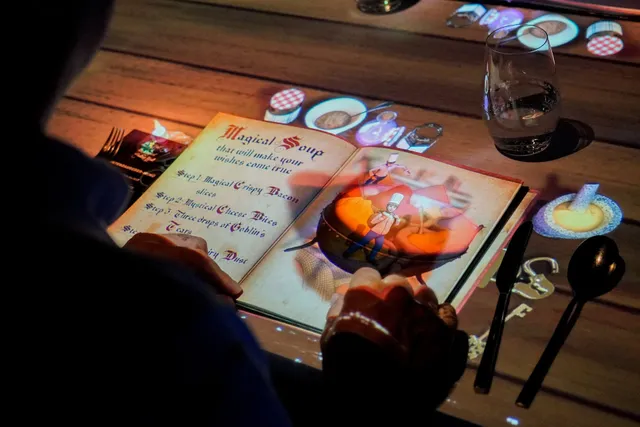 Magical Soup
that will make your
wishes come true
Step 1: Magical Crispy Bacon
slices
Step 2: Mystical Cheese Bites
Step 3: Three drops of Goblin's
Tears
Dust